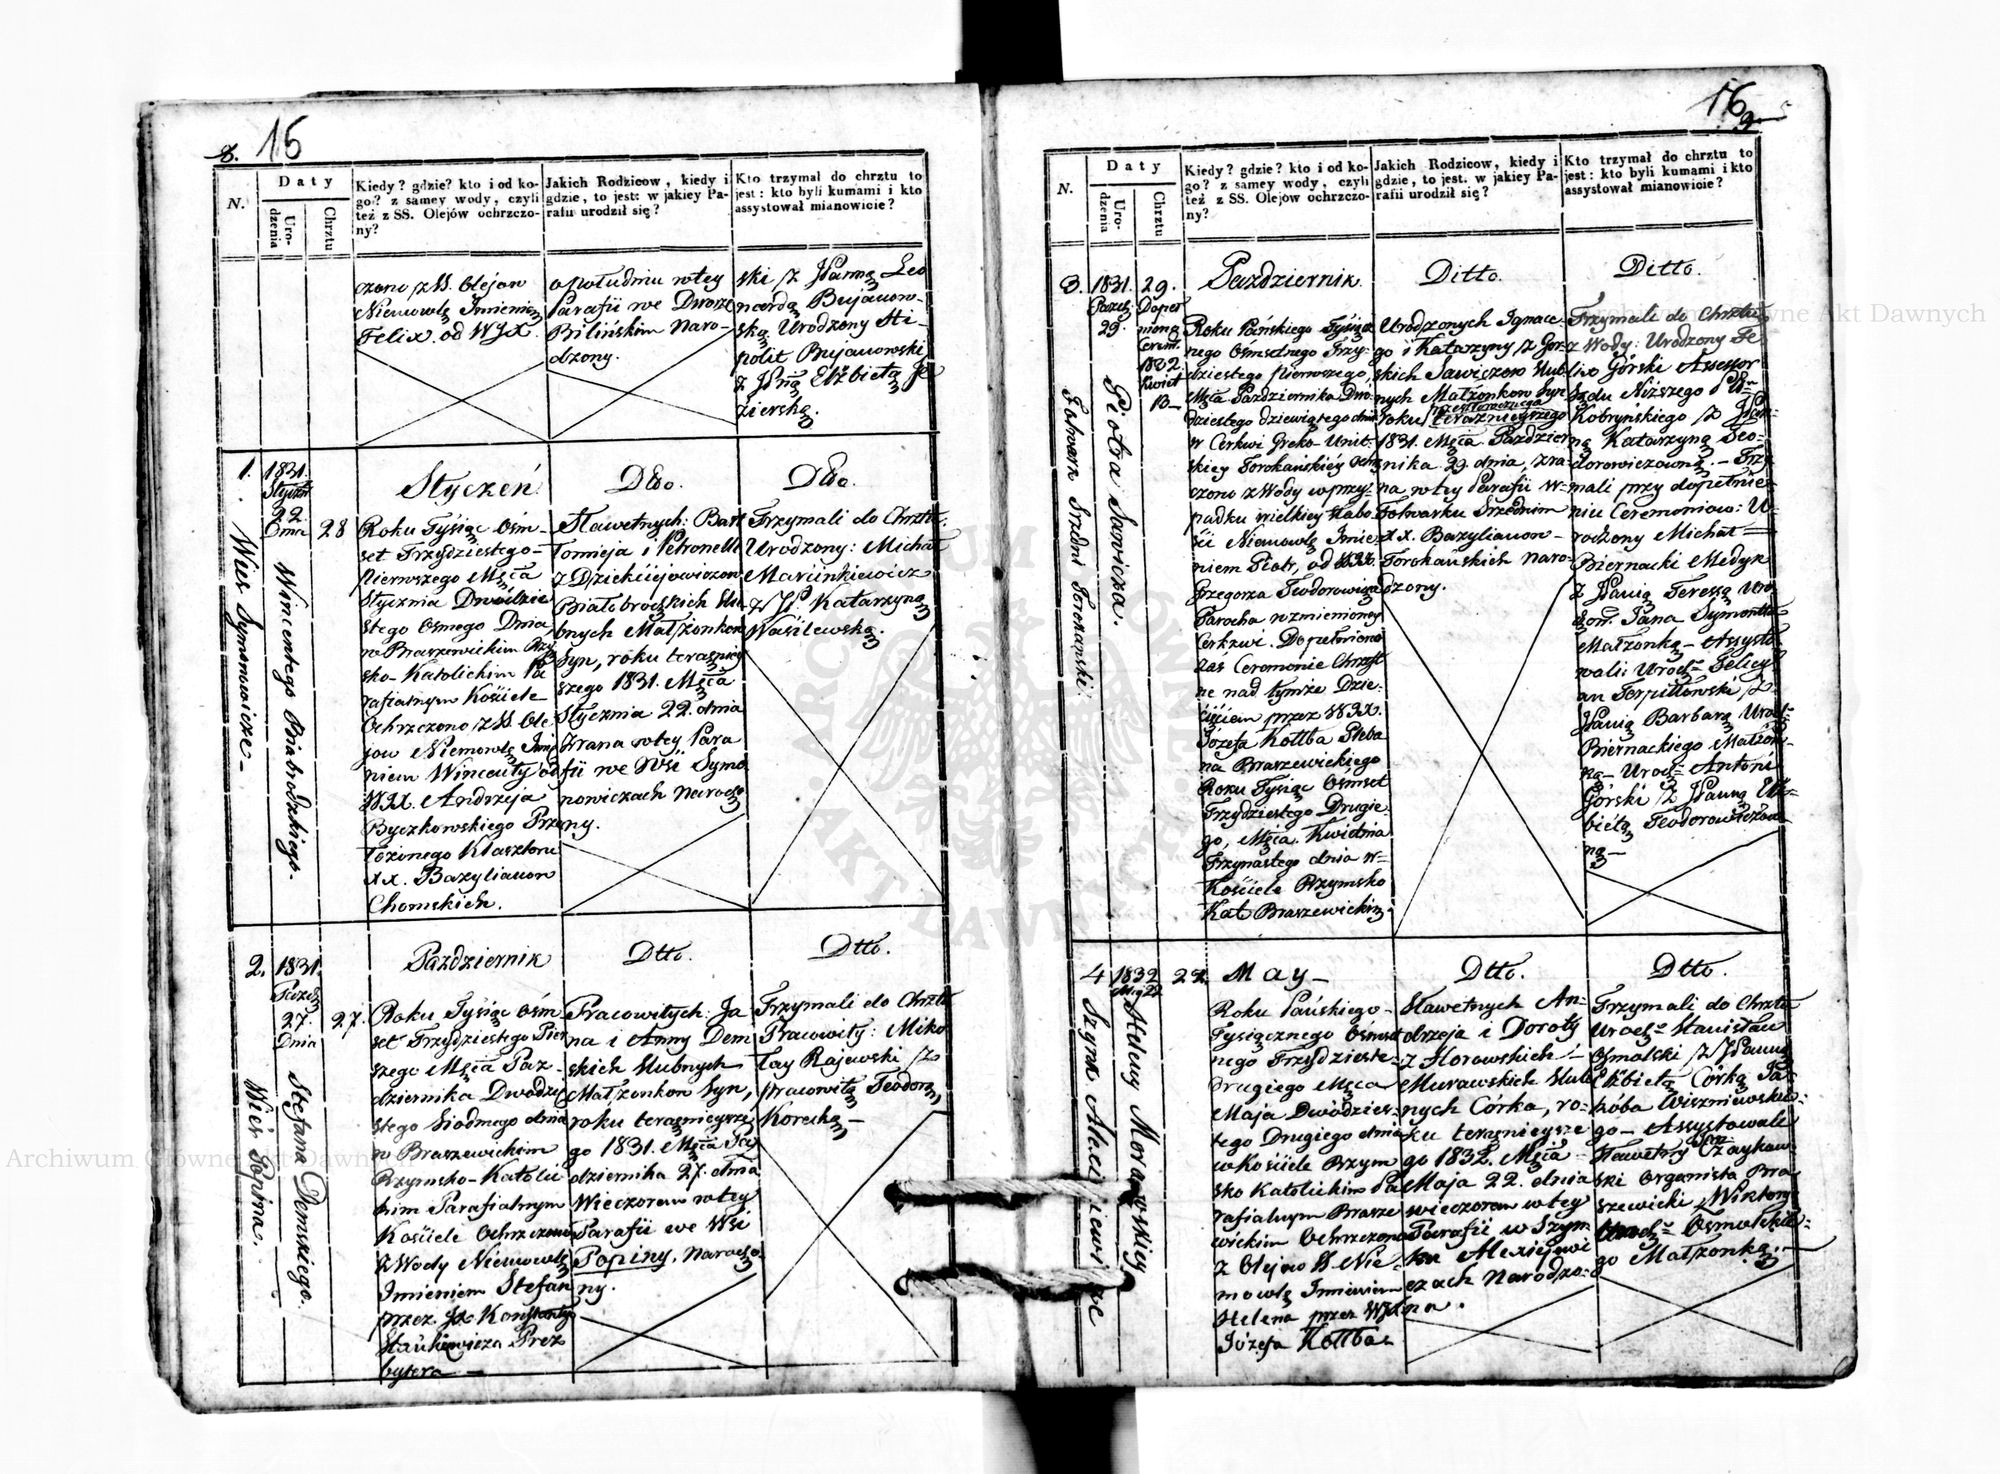 8. 15
N.
Daty
Uro-
dzenia
Chrztu
Kiedy? gdzie? kto i od ko-
go? z samey wody, czyli
też z SS. Olejów ochrzczo-
ny?
Jakich Rodzicow, kiedy i
gdzie, to jest: w jakiey Pa-
rafii urodził się?
Kto trzymał do chrztu to
jest: kto byli kumami i kto
assystował mianowicie?
czono z SS. Olejow
Niemowlę Imieniem
Felix od WJX
o południu w tey
Parafii we Dworze
Bilińskim Naro-
dzony.
ski z JPanną Leo
nardą Bujanow-
ską Urodzony Hi-
polit Bujanowski
z JPnną Elżbietą Je
zierską.
1.
1831.
Styczń
22
Dnia
28
Wieś Symonowicze
Wincentego Białobrodzkiego.
Styczeń
Roku Tysiąc Ośm
set Trzydziestego
Pierwszego Mca
Stycznia Dwódzie
stego Osmego Dnia
w Braszewickim Rzy
sko-Katolickim Pa
rafialnym Kościele
Ochrzczono z SS. Ole
jow Niemowlę Imie
niem Wincenty od
WJX. Andrzeja
Byczkowskiego Prze
łożonego Klasztoru
XX. Bazylianow
Chomskich.
Dtto.
Sławetnych: Bart
łomieja i Petronelli
Białobrodzkich Ślu
bnych Małżonkow
Syn, roku teraźniey
szego 1831. Mca
Stycznia 22. dnia
Zrana w tey Para
fii we Wsi Symo
nowiczach Narodzo
ny.
Dtto.
Trzymali do Chrztu:
Urodzony: Michał
Marcinkiewicz
z JP. Katarzyną
Wasilewską.
2.
1831.
Pazdz
27.
Dnia
27.
Wieś Popina.
Stefana Demskiego.
Pazdziernik
Roku Tysiąc Ośm
set Trzydziestego Pier
szego Mca Paz-
dziernika Dwódzie
stego Siodmego dnia
w Braszewickim
Rzymsko-Katolic
kim Parafialnym
Kościele Ochrzczono
z Wody Niemowlę
Imieniem Stefan
przez Jx Konstantego
Stankiewicza Prez
bytera
Dtto.
Pracowitych: Ja
na i Anny Dem
skich Ślubnych
Małżonkow Syn,
roku teraznieysze
go 1831. Mca Paź
dziernika 27. dnia
Wieczorem w tey
Parafii we Wsi
Popiny, Narodzo
ny.
Dtto.
Trzymali do Chrztu
Pracowity: Miko
łay Rajewski z
pracowitą Teodorą
Korecką
16
9
N.
Daty
Uro-
dzenia
Chrztu
Kiedy? gdzie? kto i od ko-
go? z samey wody, czyli
też z SS. Olejów ochrzczo-
ny?
Jakich Rodzicow, kiedy i
gdzie, to jest: w jakiey Pa-
rafii urodził się?
Kto trzymał do chrztu to
jest: kto byli kumami i kto
assystował mianowicie?
3.
1831.
Pazdz
29.
29.
Dopeł
niono
Cerem.
1832
Kwiet
13
Folwark Srzedni Torokański
Piotra Sawicza.
Pazdziernik
Roku Pańskiego Tysiącz
nego Ośmsetnego Trzy-
dziestego pierwszego,
Mca Pazdziernika Dwó
dziestego dziewiątego dnia
w Cerkwi Greko-Unit-
skiey Torokańskiey ochrz
czono z Wody w przy-
padku wielkiey słabo-
ści Niemowlę Imie
niem Piotr, od WJX.
Grzegorza Teodorowicza
Parocha wzmienioney
Cerkwi. Dopełniono
zaś Ceremonie Chrzest
ne nad tymże Dzie-
cięciem przez WJX.
Józefa Kottba Pleba
na Braszewickiego
Roku Tysiąc Ośmset
Trzydziestego Drugie-
go, Mca Kwietnia
Trzynastego dnia w
Kościele Rzymsko
Kat Braszewickim
Ditto.
Urodzonych Ignace-
go i Katarzyny z Gór-
skich Sawiczow Ślub
nych Małżonkow Syn
roku teraznieyszego
1831. Mca Pazdzier
nika 29. dnia, zra
na w tey Parafii w
Folwarku Srzednim
XX. Bazylianow
Torokańskich Naro-
dzony.
Ditto.
Trzymali do Chrztu
z Wody: Urodzony Fe
lix Górski Assessor
Sądu Niższego
Kobryńskiego z JPan-
ną Katarzyną Teo-
dorowiczowną. Trzy
mali przy dopełnie-
niu Ceremoniow: U-
rodzony Michał
Biernacki Medyk
z JPanią Teressą Uro
Pana Symona
Małżonką Assysto
wali: Urodz Felicy
an Terpiłowski z
JPanią Barbarą Urodz
Biernackiego Małżon-
ką Urodz Antoni
Górski z JPanną Elż-
bietą Teodorowiczow
ną
4
1832
May 22
22.
Szynk Alexijewicze
Heleny Morawskiey
May
Roku Pańskiego
Tysiącznego Ośmset
nego Trzydzieste
drugiego Mca
Maja Dwódzies-
tego Drugiego dnia
w Kościele Rzym
sko Katolickim Pa
rafialnym Brasze
wickim Ochrzczono
z Olejow S. Nie-
mowlę Imieniem
Helena przez WJX
Józefa Kottba
Dtto.
Sławetnych An-
drzeja i Doroty
z Horowskich
Murawskich Ślub
nych Córka, ro-
ku teraznieysze
go 1832. Mca
Maja 22. dnia
wieczorem w tey
Parafii w Szyn
ku Alexijewi
czach Narodzo-
na.
Dtto.
Trzymali do Chrztu
Urodz Stanisław
Osmolski z JPanną
Elżbietą Córką Ja-
kóba Wiszniewskie-
go Assystowali
Sławetny Czaykow
ski Organista Bra
szewicki Wiktorya
Urodz Osmolskie-
go Małżonką.
Archiwum Główne Akt Dawnych
Archiwum Główne Akt Dawnych
ARCHIWUM GŁÓWNE AKT DAWNYCH